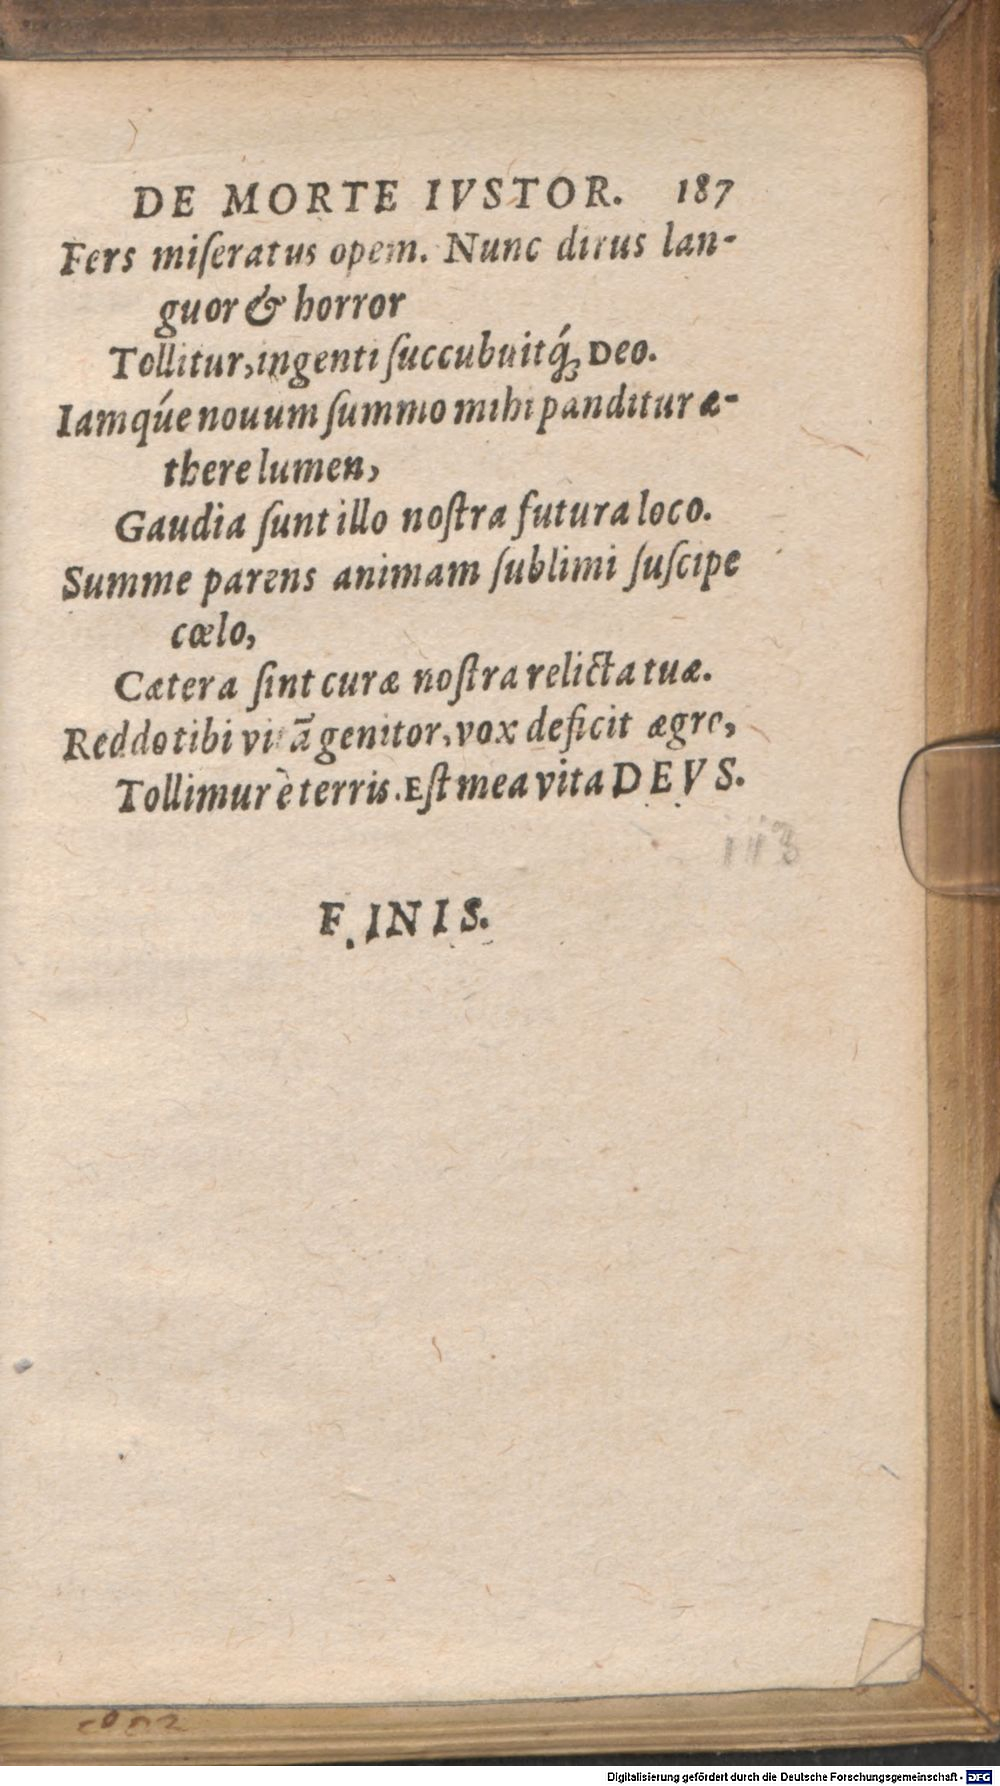 DE MORTE IVSTOR. 187
Fers miſeratus opem. Nunc dirus lan-
guor & horror
Tollitur, ingenti ſuccubuitq́ꝫ Deo.
Iamq́ue nouum ſummo mihi panditur æ-
there lumen,
Gaudia ſunt illo noſtra futura loco.
Summe parens animam ſublimi ſuſcipe
cœlo,
Cætera ſint curæ noſtra relicta tuæ.
Reddo tibi vitā genitor, vox deficit ægre,
Tollimur è terris. Eſt mea vita DEVS.
FINIS.
Digitalisierung gefördert durch die Deutsche Forschungsgemeinschaft - DFG